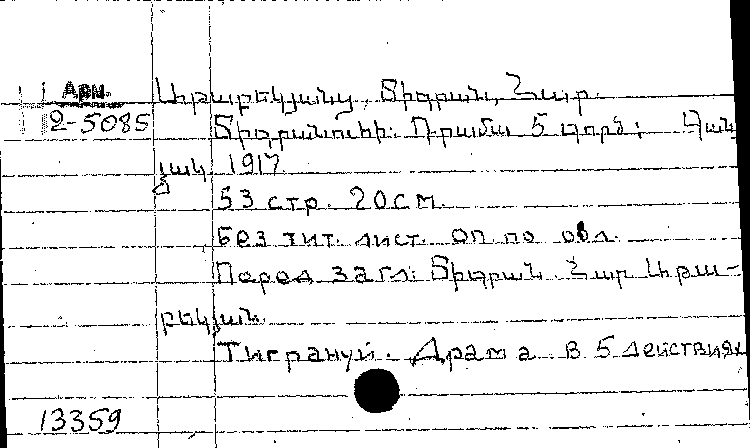 Арм.
2-5085
Աթաբեկյանց, Տիգրան, Հար.
Տիգրանուհի: Դրամա 5 գործ: Գան
ձակ 1917
53 стр. 20см.
Без тит. лист. оп. по обл.
Перед загл: Տիգրան. Հար Աթա-
բեկյան.
Тигрануи. Драма в 5 действиях
13359